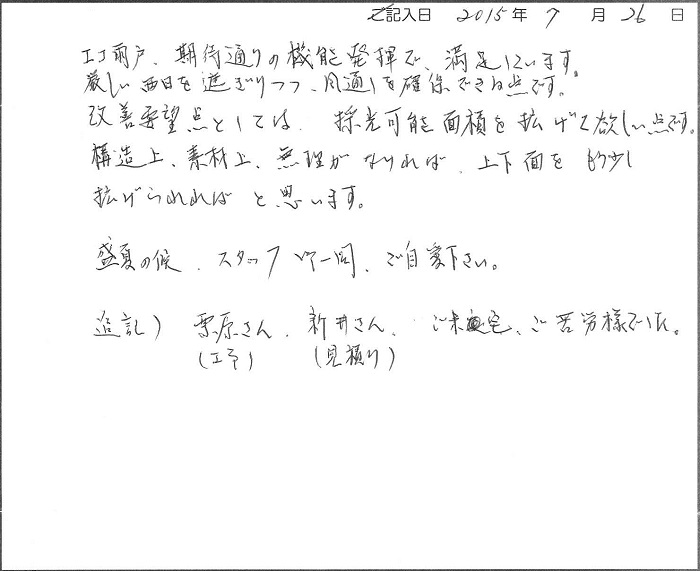 ご記入日 2015年 7月 26日
エコ雨戸、期待通りの機能発揮で、満足しています。
厳しい西日を遮ぎりつつ、風通しを確保できる点です。
改善要望点としては、採光可能面積を拡げて欲しい点です。
構造上、素材上、無理がなければ、上下面をもう少し
拡げられればと思います。
盛夏の候、スタッフ一同、ご自愛下さい。
追記) 栗原さん、新井さん、ご来宅、ご苦労様でした。
(工事) (見積り)